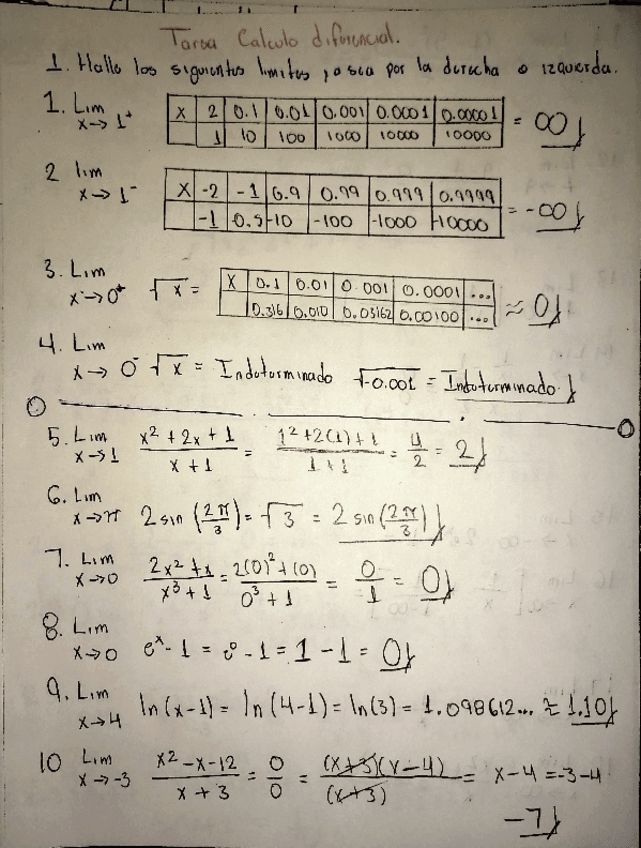 Tarea Calculo diferencial.
1. Halle los siguientes limites ya sea por la derecha o izquierda.
1. Lim x→1⁺
X 2 0.1 0.01 0.001 0.0001 0.00001
1 10 100 1000 10000 10000
= ∞
2 lim x→1⁻
X -2 -1 0.9 0.99 0.999 0.9999
-1 0.5 -10 -100 -1000 -10000
= -∞
3. Lim x→0⁺ √x =
X 0.1 0.01 0.001 0.0001 ...
0.316 0.010 0.03162 0.00100 ...
≈ 0
4. Lim x→0⁻ √x = Indeterminado √-0.001 = Indeterminado
5. Lim x→1 (x² + 2x + 1)/(x + 1) = (1² + 2(1) + 1)/(1 + 1) = 4/2 = 2
6. Lim x→π 2 sin (2π/3) = √3 = 2 sin (2π/3)
7. Lim x→0 (2x² + x)/(x³ + 1) = (2(0)² + (0))/(0³ + 1) = 0/1 = 0
8. Lim x→0 eˣ - 1 = e⁰ - 1 = 1 - 1 = 0
9. Lim x→4 ln(x-1) = ln(4-1) = ln(3) = 1.098612... ≈ 1.10
10 Lim x→-3 (x² - x - 12)/(x + 3) = 0/0 = (x+3)(x-4)/(x+3) = x-4 = -3-4
-7